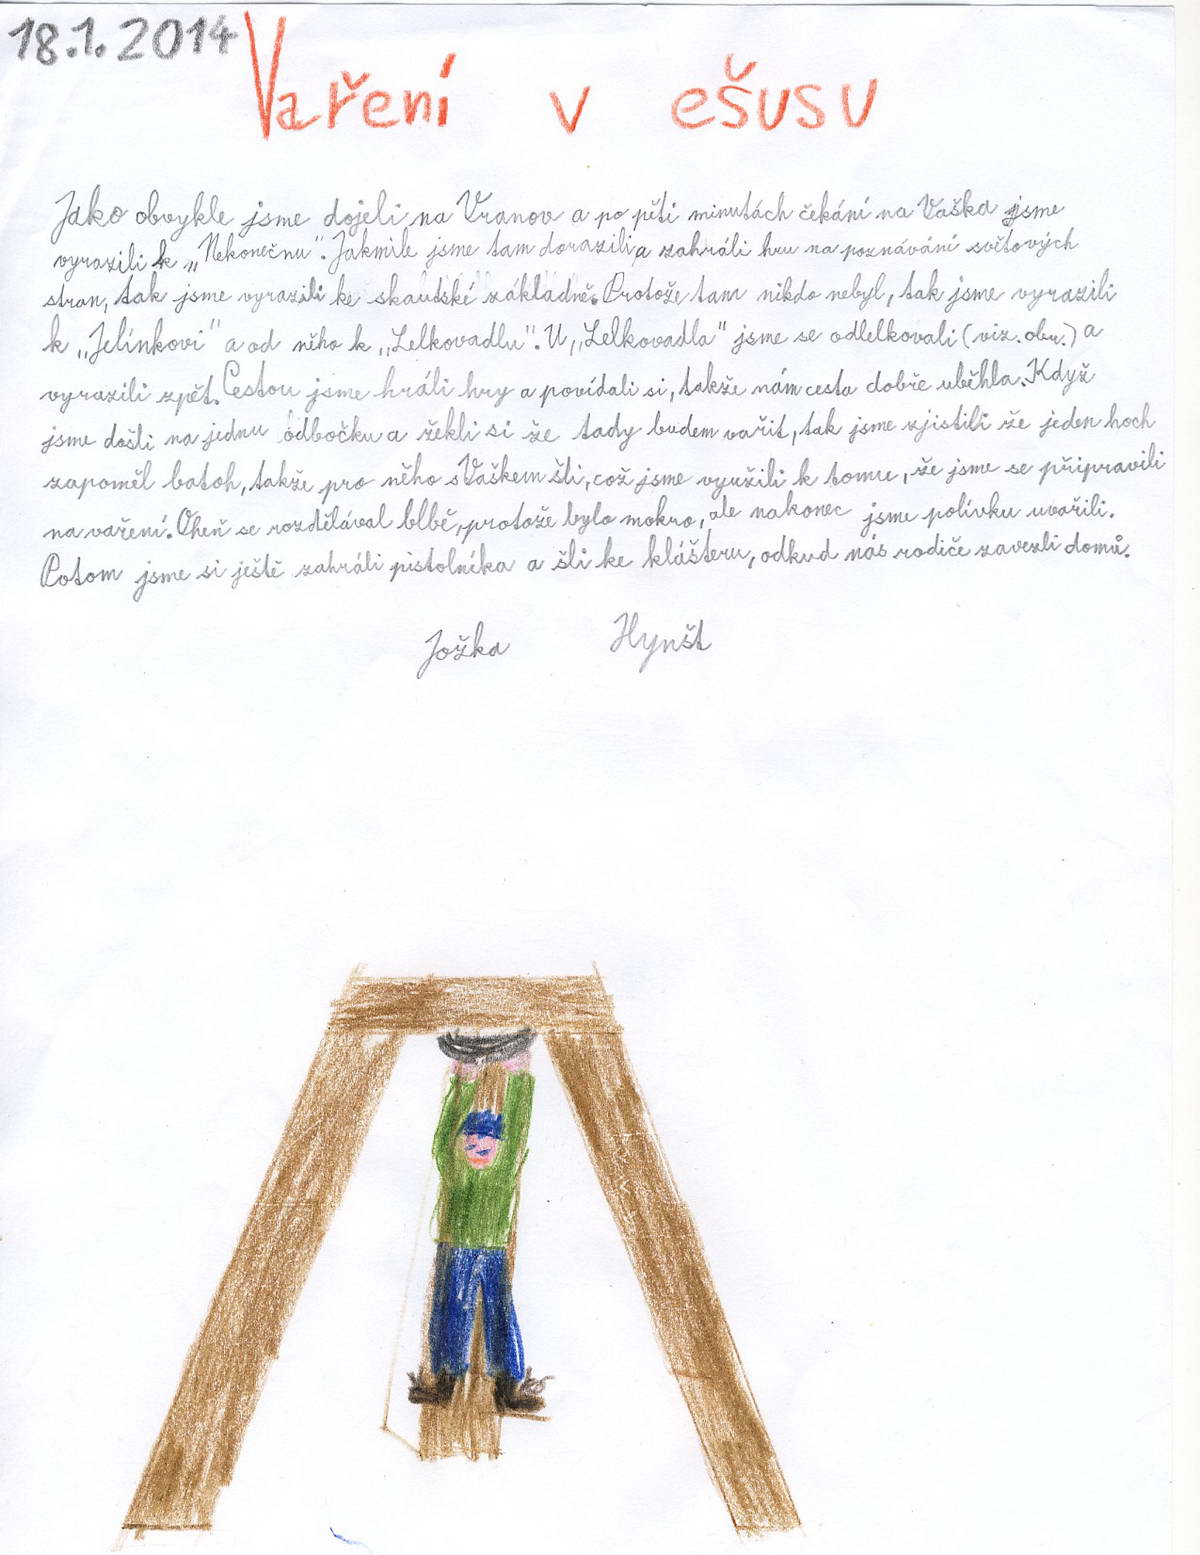 18.1.2014
Vaření v ešusu
Jako obvykle jsme dojeli na Vranov a po pěti minutách čekání na Vaška jsme
vyrazili k „Nekonečnu". Jakmile jsme tam dorazili a zahráli hru na poznávání světových
stran, tak jsme vyrazili ke skautské základně. Protože tam nikdo nebyl, tak jsme vyrazili
k „Jelínkovi" a od něho k „Lelkovadlu". U „Lelkovadla" jsme se odlelkovali (viz. obr.) a
vyrazili zpět. Cestou jsme hráli hry a povídali si, takže nám cesta dobře uběhla. Když
jsme došli na jednu odbočku a řekli si že tady budem vařit, tak jsme zjistili že jeden hoch
zapoměl batoh, takže pro něho s Vaškem šli, což jsme využili k tomu, že jsme se připravili
na vaření. Oheň se rozdělával blbě, protože bylo mokro, ale nakonec jsme polívku uvařili.
Potom jsme si ještě zahráli pistolníka a šli ke klášteru, odkud nás rodiče zavezli domů.
Jožka Hynšt